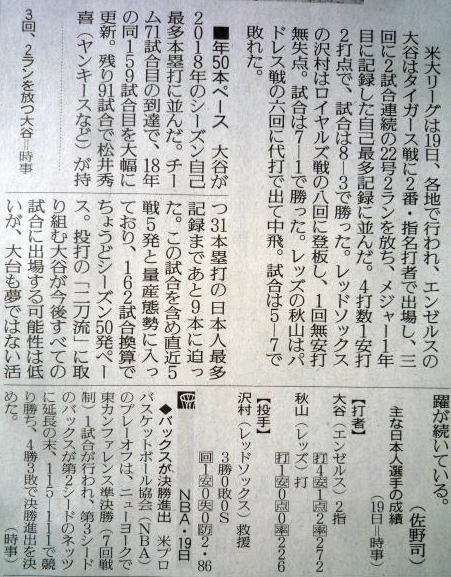 米大リーグは19日、各地で行われ、エンゼルスの
大谷はタイガース戦に２番・指名打者で出場し、三
回に２試合連続の22号２ランを放ち、メジャー１年
目に記録した自己最多記録に並んだ。４打数１安打
２打点で、試合は８―３で勝った。レッドソックス
の沢村はロイヤルズ戦の八回に登板し、１回無安打
無失点。試合は７―１で勝った。レッズの秋山はパ
ドレス戦の六回に代打で出て中飛。試合は５―７で
敗れた。
■年50本ペース　大谷が
２０１８年のシーズン自己
最多本塁打に並んだ。チー
ム71試合目の到達で、18年
の同１５９試合目を大幅に
更新。残り91試合で松井秀
喜（ヤンキースなど）が持
つ31本塁打の日本人最多
記録まであと９本に迫っ
た。この試合を含め直近５
戦５発と量産態勢に入っ
ており、１６２試合換算で
ちょうどシーズン50発ペー
ス。投打の「二刀流」に取
り組む大谷が今後すべての
試合に出場する可能性は低
いが、大台も夢ではない活
躍が続いている。
（佐野司）
３回、２ランを放つ大谷＝時事
主な日本人選手の成績
（19日＝時事）
【打者】
大谷（エンゼルス）２指
打４安１点２率２７２
秋山（レッズ）打
打１安０点０率２２６
【投手】
沢村（レッドソックス）救援
３勝０敗０Ｓ
回１安０失０防２・86
ＮＢＡ・19日
◆バックスが決勝進出　米プロ
バスケットボール協会（ＮＢＡ）
のプレーオフは、ニューヨークで
東カンファレンス準決勝（７回戦
制）１試合が行われ、第３シード
のバックスが第２シードのネッツ
に延長の末、１１５―１１１で競
り勝ち、４勝３敗で決勝進出を決
めた。　（時事）